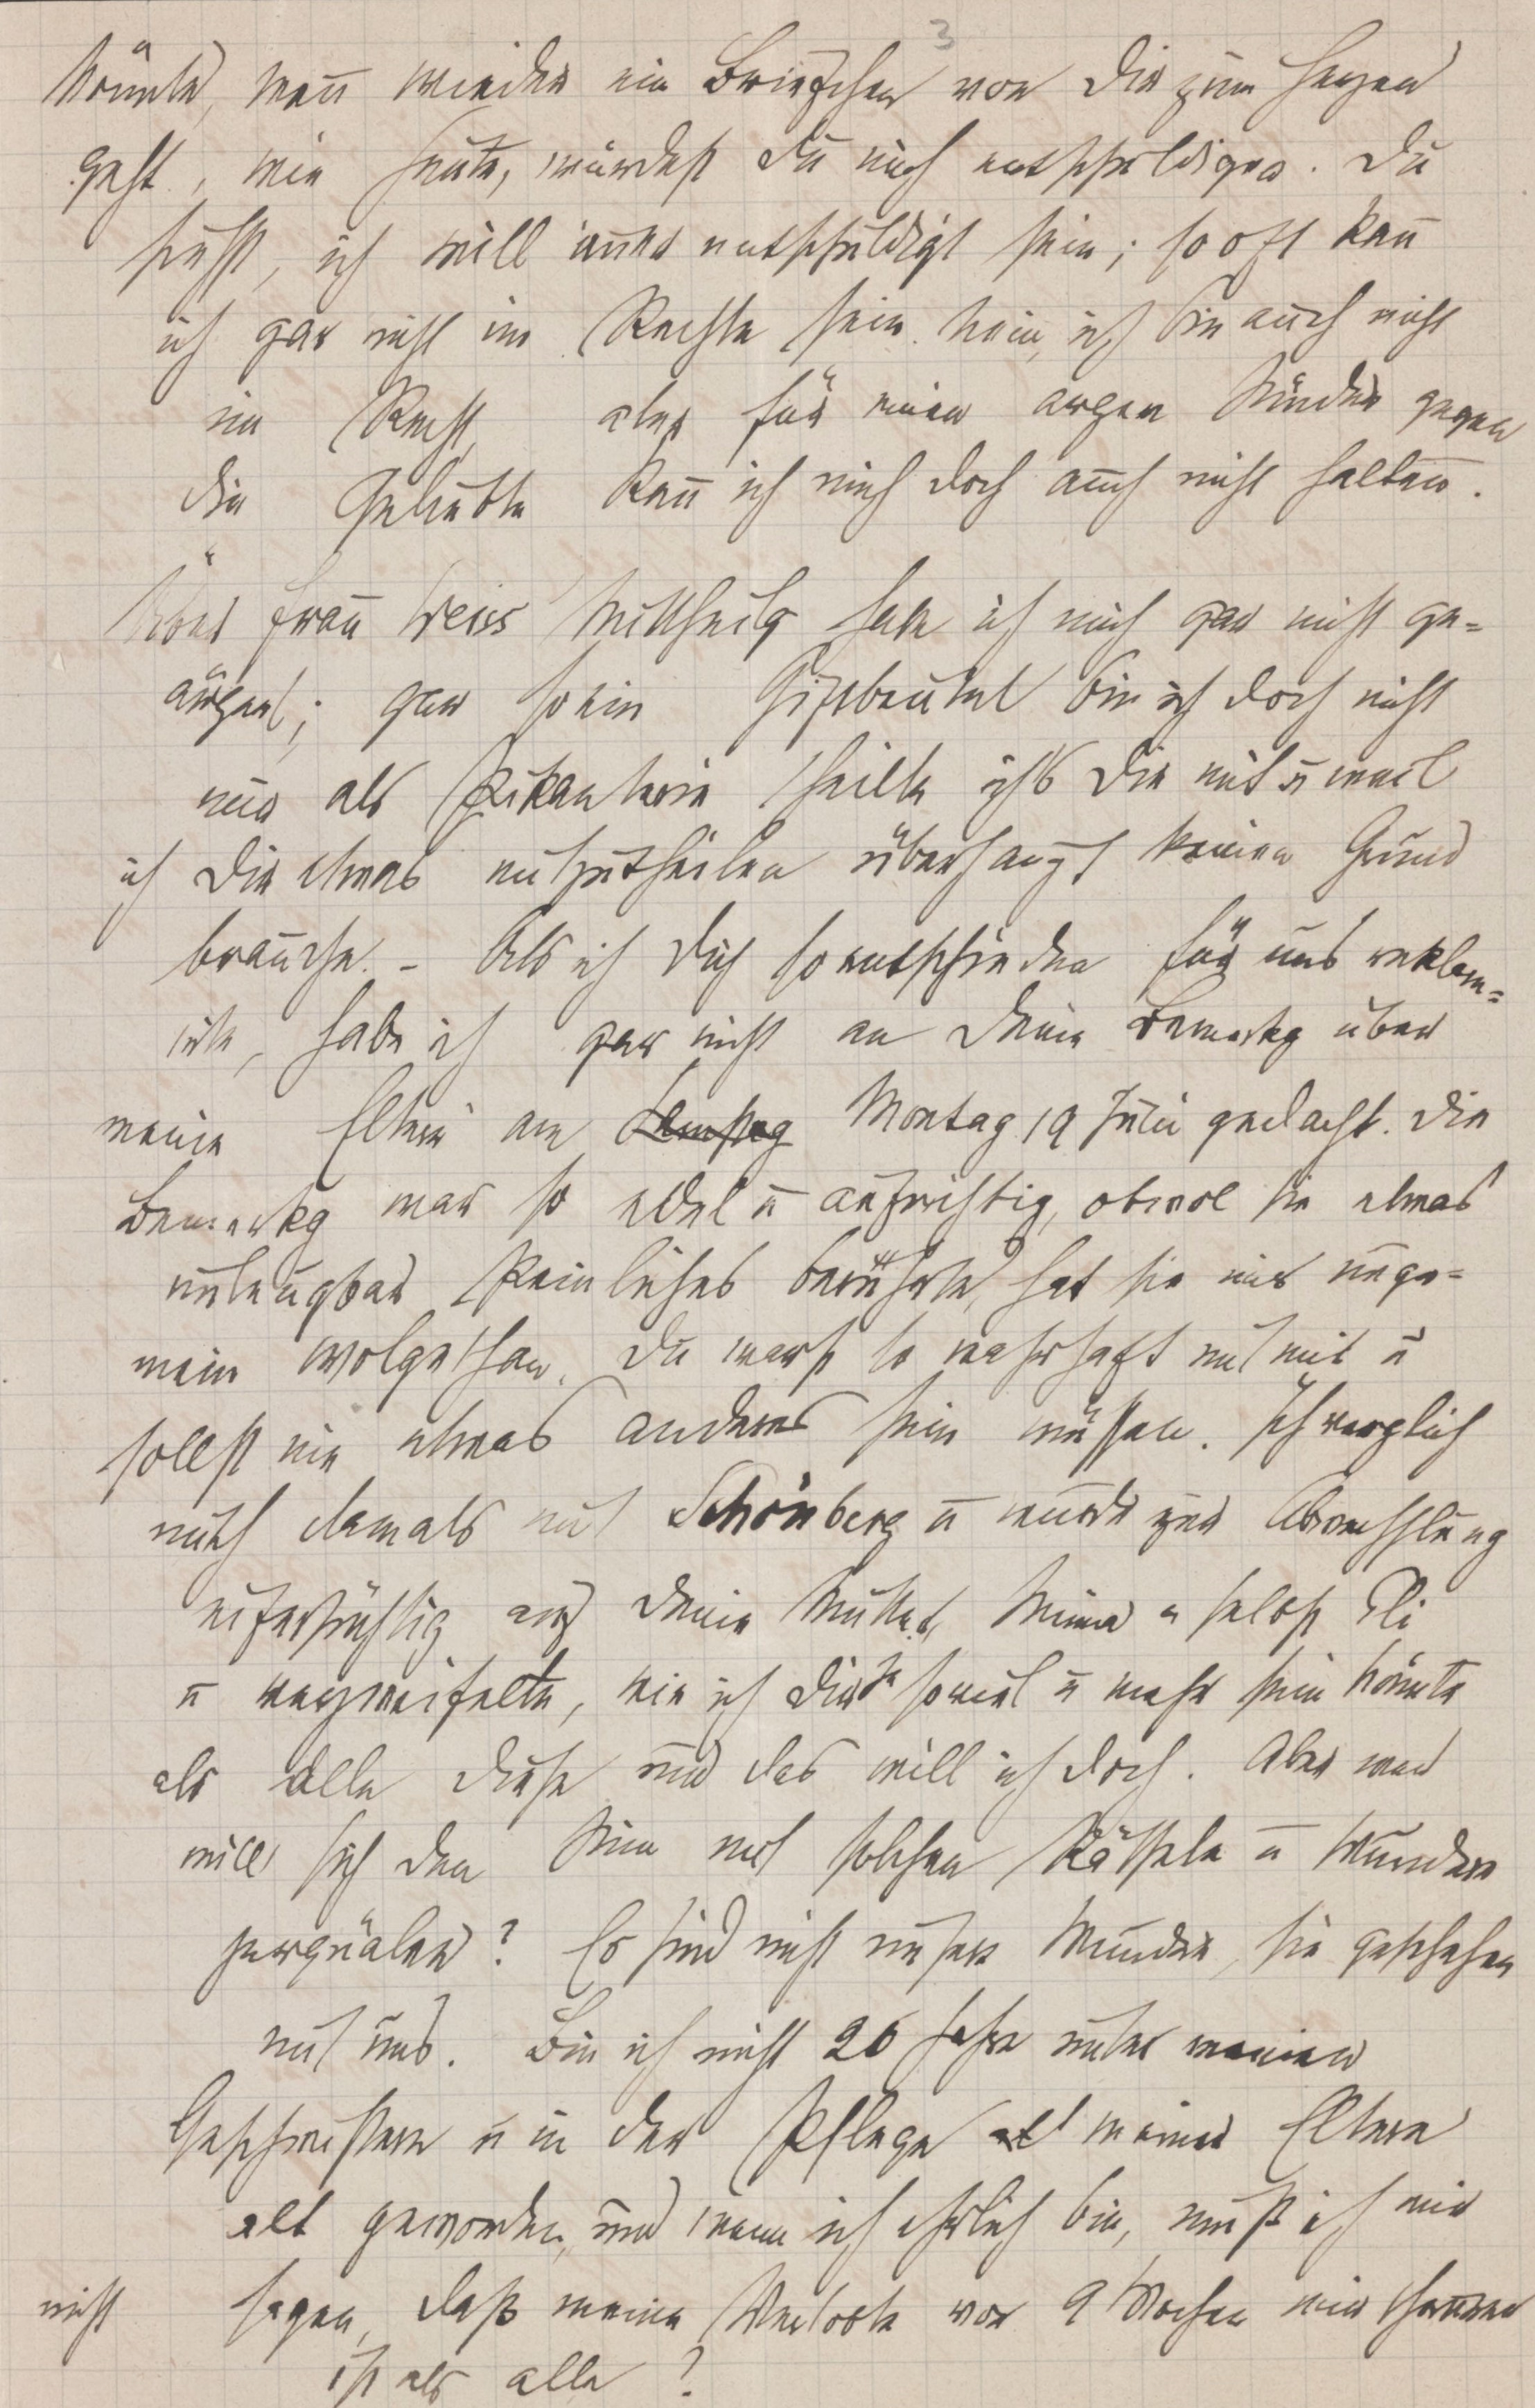 3
könnte, wenn wieder ein Briefchen von Dir zum Herzen
geht, wie heute, würdest Du mich entschuldigen. Du
siehst, ich will immer entschuldigt sein; so oft kann
ich gar nicht im Rechte sein. Nein, ich bin auch nicht
im Recht, aber für einen argen Sünder gegen
die Geliebte kann ich mich doch auch nicht halten.
Über Frau Weiss Mittheilg habe ich mich gar nicht ge=
ärgert; gar so ein Giftbeutel bin ich doch nicht
nur als Pikanterie theilte ichs Dir mit u weil
ich Dir etwas mitzutheilen überhaupt keinen Grund
brauche. – Als ich Dich so entschieden für uns reklam=
irte, habe ich gar nicht an Deine Bemerkg über
meine Eltern am Samstag Montag 19 Juni gedacht. Die
Bemerkg war so edel u aufrichtig, obwol sie etwas
unleugbar Peinliches berührte, hat sie mir unge=
mein wolgethan. Du warst so wahrhaft mit mir u
sollst nie etwas anderes sein müssen. Ich verglich
mich damals mit Schönberg u wurde zur Abwechslung
eifersüchtig auf Deine Mutter, Minna u selbst Eli
u verzweifelte, wie ich Dir je soviel u mehr sein könnte
als alle diese und das will ich doch. Aber wer
will sich den Sinn mit solchen Räthseln u Wundern
zerquälen? Es sind nicht unsere Wunder, sie geschehen
mit uns. Bin ich nicht 26 Jahre unter meinen
Geschwistern u in der Pflege meiner Eltern
alt geworden, und wenn ich ehrlich bin, muß ich mir
nicht sagen, daß meine Verlobte vor 9 Wochen mir theurer
ist als alle?